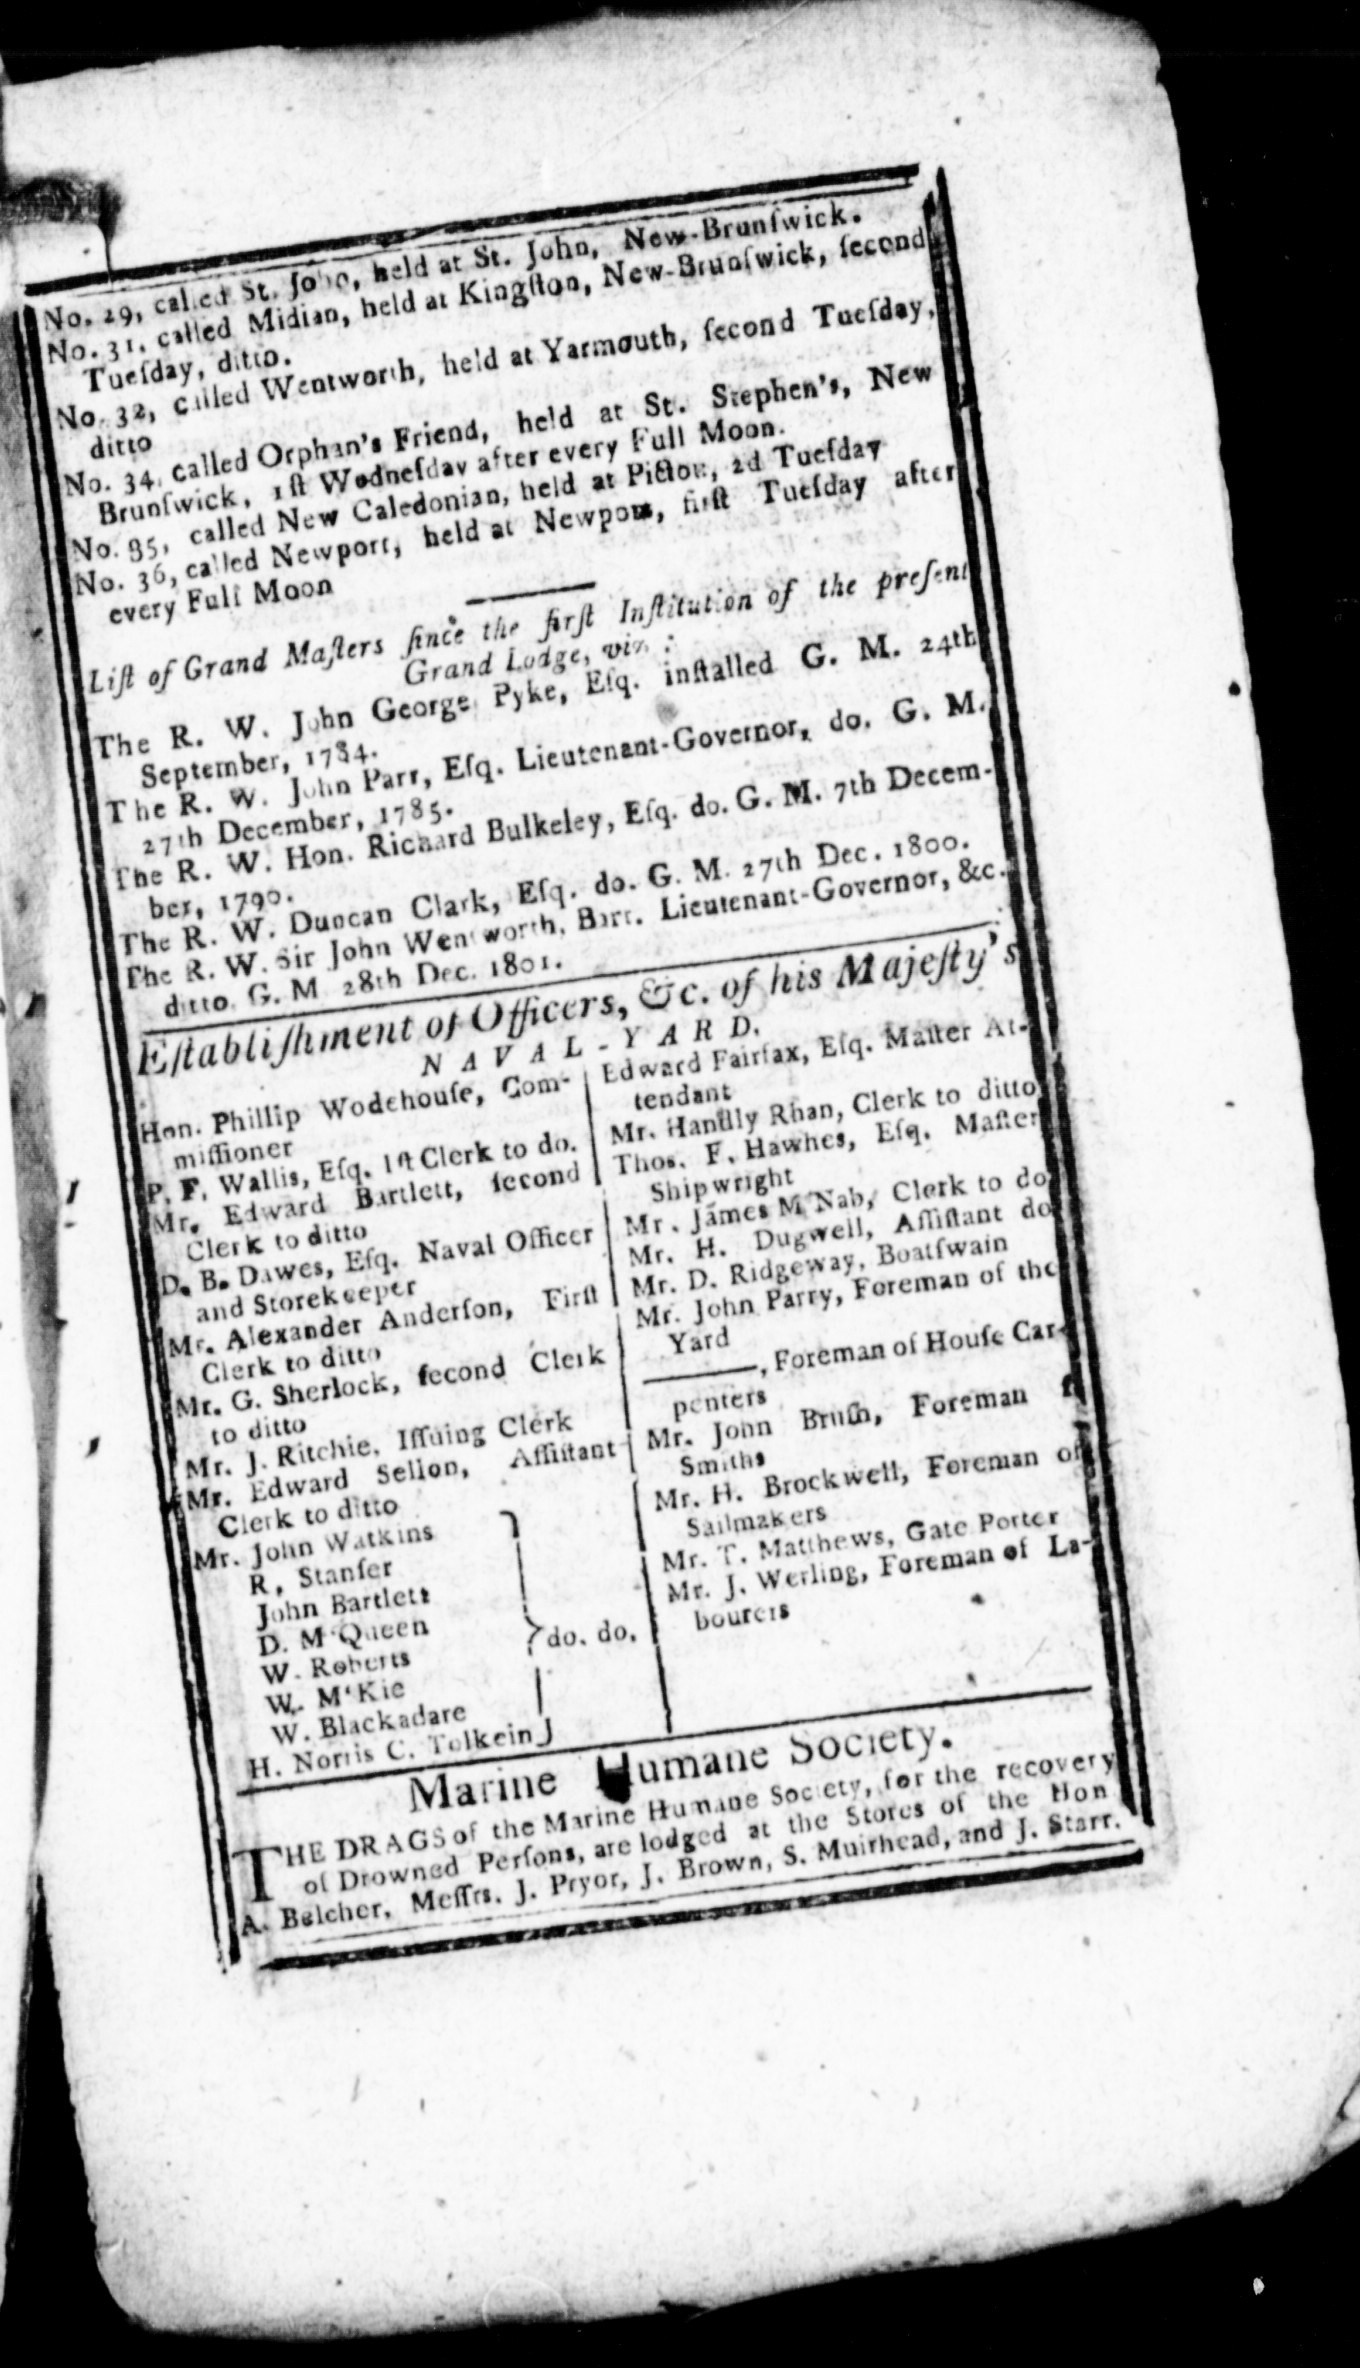 No. 29, called St. John, held at St. John, New-Brunſwick.
No. 31, called Midian, held at Kingſton, New-Brunſwick, ſecond
Tueſday, ditto.
No. 32, called Wentworth, held at Yarmouth, ſecond Tueſday,
ditto
No. 34, called Orphan's Friend, held at St. Stephen's, New
Brunſwick, 1ſt Wedneſday after every Full Moon.
No. 35, called New Caledonian, held at Pictou, 2d Tueſday
No. 36, called Newport, held at Newport, firſt Tueſday after
every Full Moon
Liſt of Grand Maſters ſince the firſt Inſtitution of the preſent
Grand Lodge, viz. :
The R. W. John George Pyke, Eſq. inſtalled G. M. 24th
September, 1784.
The R. W. John Parr, Eſq. Lieutenant-Governor, do. G. M.
27th December, 1785.
The R. W. Hon. Richard Bulkeley, Eſq. do. G. M. 7th Decem-
ber, 1790.
The R. W. Duncan Clark, Eſq. do. G. M. 27th Dec. 1800.
The R. W. Sir John Wentworth, Bart. Lieutenant-Governor, &c.
ditto. G. M 28th Dec. 1801.
Eſtabliſhment of Officers, &c. of his Majeſty's
NAVAL-YARD.
Hon. Phillip Wodehouſe, Com-
miſſioner
P. F. Wallis, Eſq. 1ſt Clerk to do.
Mr. Edward Bartlett, ſecond
Clerk to ditto
D. B. Dawes, Eſq. Naval Officer
and Storekeeper
Mr. Alexander Anderſon, Firſt
Clerk to ditto
Mr. G. Sherlock, ſecond Clerk
to ditto
Mr. J. Ritchie, Iſſuing Clerk
Mr. Edward Sellon, Aſſiſtant
Clerk to ditto
Mr. John Watkins
R, Stanſer
John Bartlett
D. M'Queen
W. Roberts
W. M'Kie
W. Blackadare
H. Norris C. Tolkein
} do. do.
Edward Fairfax, Eſq. Maſter At-
tendant
Mr. Handly Rhan, Clerk to ditto
Thos. F. Hawhes, Eſq. Maſter
Shipwright
Mr. James M'Nab, Clerk to do
Mr. H. Dugwell, Aſſiſtant do
Mr. D. Ridgeway, Boatſwain
Mr. John Parry, Foreman of the
Yard
———, Foreman of Houſe Car-
penters
Mr. John Bruſh, Foreman
Smiths
Mr. H. Brockwell, Foreman of
Sailmakers
Mr. T. Matthews, Gate Porter
Mr. J. Werling, Foreman of La-
bourers
Marine Humane Society.
THE DRAGS of the Marine Humane Society, for the recovery
of Drowned Perſons, are lodged at the Stores of the Hon
A. Belcher, Meſſrs. J. Pryor, J. Brown, S. Muirhead, and J. Starr.